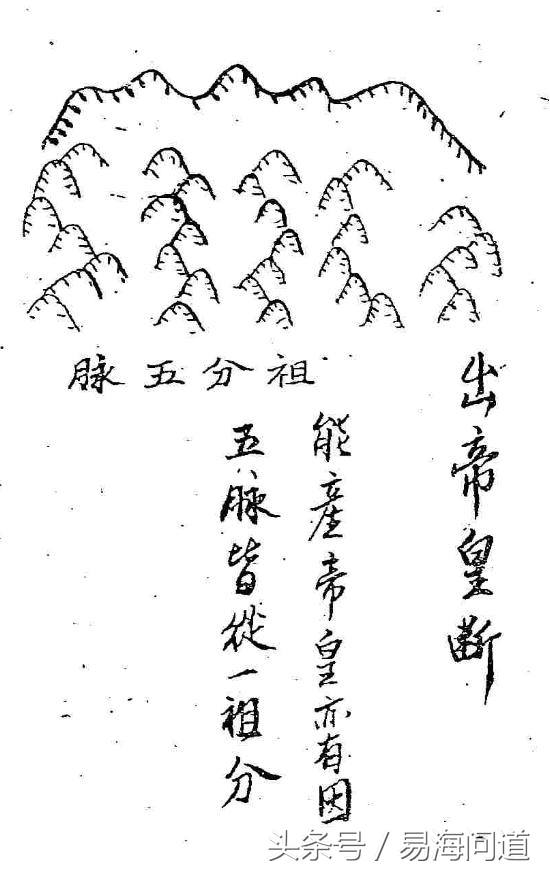 祖分五脉
出帝皇断
能產帝皇亦有因
五脉皆從一祖分
头条号 / 易海问道